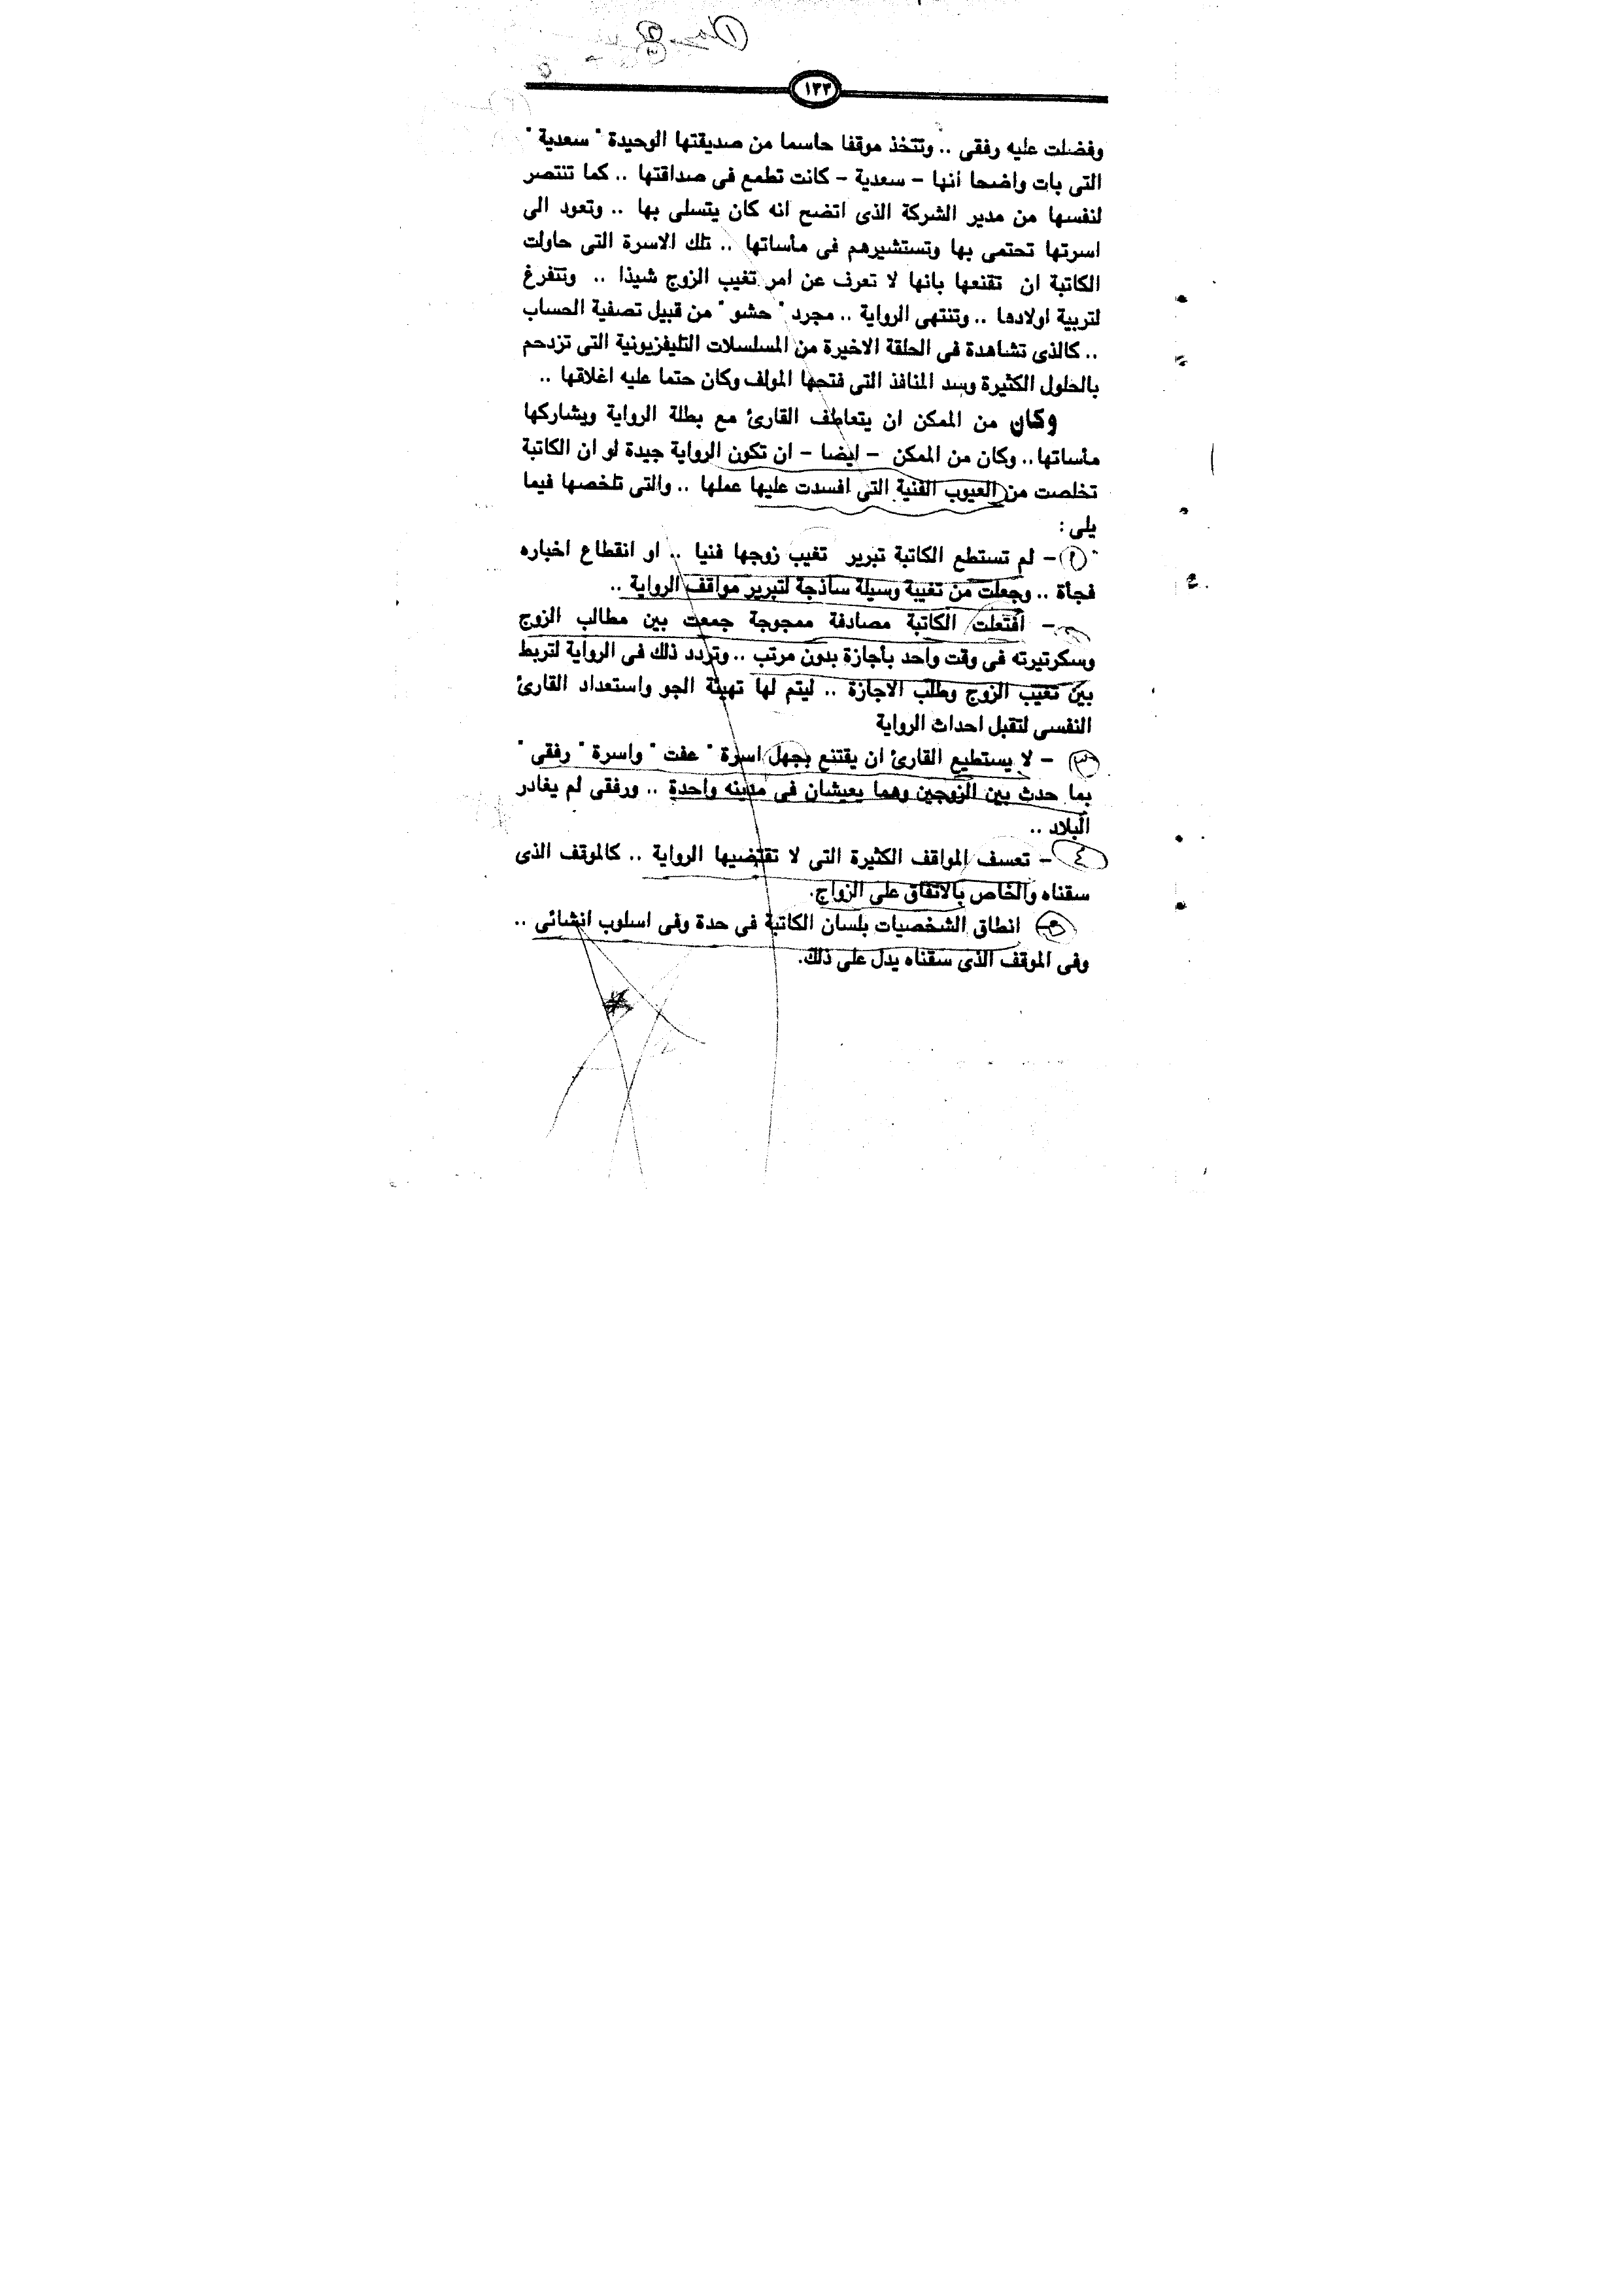 ١٣٣
وفضلت عليه رفقى .. وتتخذ موقفا حاسما من صديقتها الوحيدة " سعدية "
التى بات واضحا انها - سعدية - كانت تطمع فى صداقتها .. كما تنتصر
لنفسها من مدير الشركة الذى اتضح انه كان يتسلى بها .. وتعود الى
اسرتها تحتمى بها وتستشيرهم فى مأساتها .. تلك الاسرة التى حاولت
الكاتبة ان تقنعها بانها لا تعرف عن امر تغيب الزوج شيذا .. وتتفرغ
لتربية اولادها .. وتنتهى الرواية .. مجرد " حشو " من قبيل تصفية الحساب
.. كالذى تشاهدة فى الحلقة الاخيرة من المسلسلات التليفزيونية التى تزدحم
بالحلول الكثيرة وسد المنافذ التى فتحها المولف وكان حتما عليه اغلاقها ..
وكان من الممكن ان يتعاطف القارئ مع بطلة الرواية ويشاركها
مأساتها.. وكان من الممكن - ايضا - ان تكون الرواية جيدة لو ان الكاتبة
تخلصت من العيوب الفنية التى افسدت عليها عملها .. والتى تلخصها فيما
يلى :
- لم تستطع الكاتبة تبرير تغيب زوجها فنيا .. او انقطاع اخباره
فجأة .. وجعلت من تغيبة وسيلة ساذجة لتبرير مواقف الرواية ..
- افتعلت الكاتبة مصادفة ممجوجة جمعت بين مطالب الزوج
وسكرتيرته فى وقت واحد بأجازة بدون مرتب .. وتردد ذلك فى الرواية لتربط
بين تغيب الزوج وطلب الاجازة .. ليتم لها تهيئة الجو واستعداد القارئ
النفسى لتقبل احداث الرواية
٣ - لا يستطيع القارئ ان يقتنع بجهل اسرة " عفت " واسرة " رفقى "
بما حدث بين الزوجين وهما يعيشان فى مدينه واحدة .. ورفقى لم يغادر
البلاد ..
٤ - تعسف المواقف الكثيرة التى لا تقتضيها الرواية .. كالموقف الذى
سقناه والخاص بالاتفاق على الزواج.
٥ - انطاق الشخصيات بلسان الكاتبة فى حدة وفى اسلوب انشائى ..
وفى الموقف الذى سقناه يدل على ذلك.